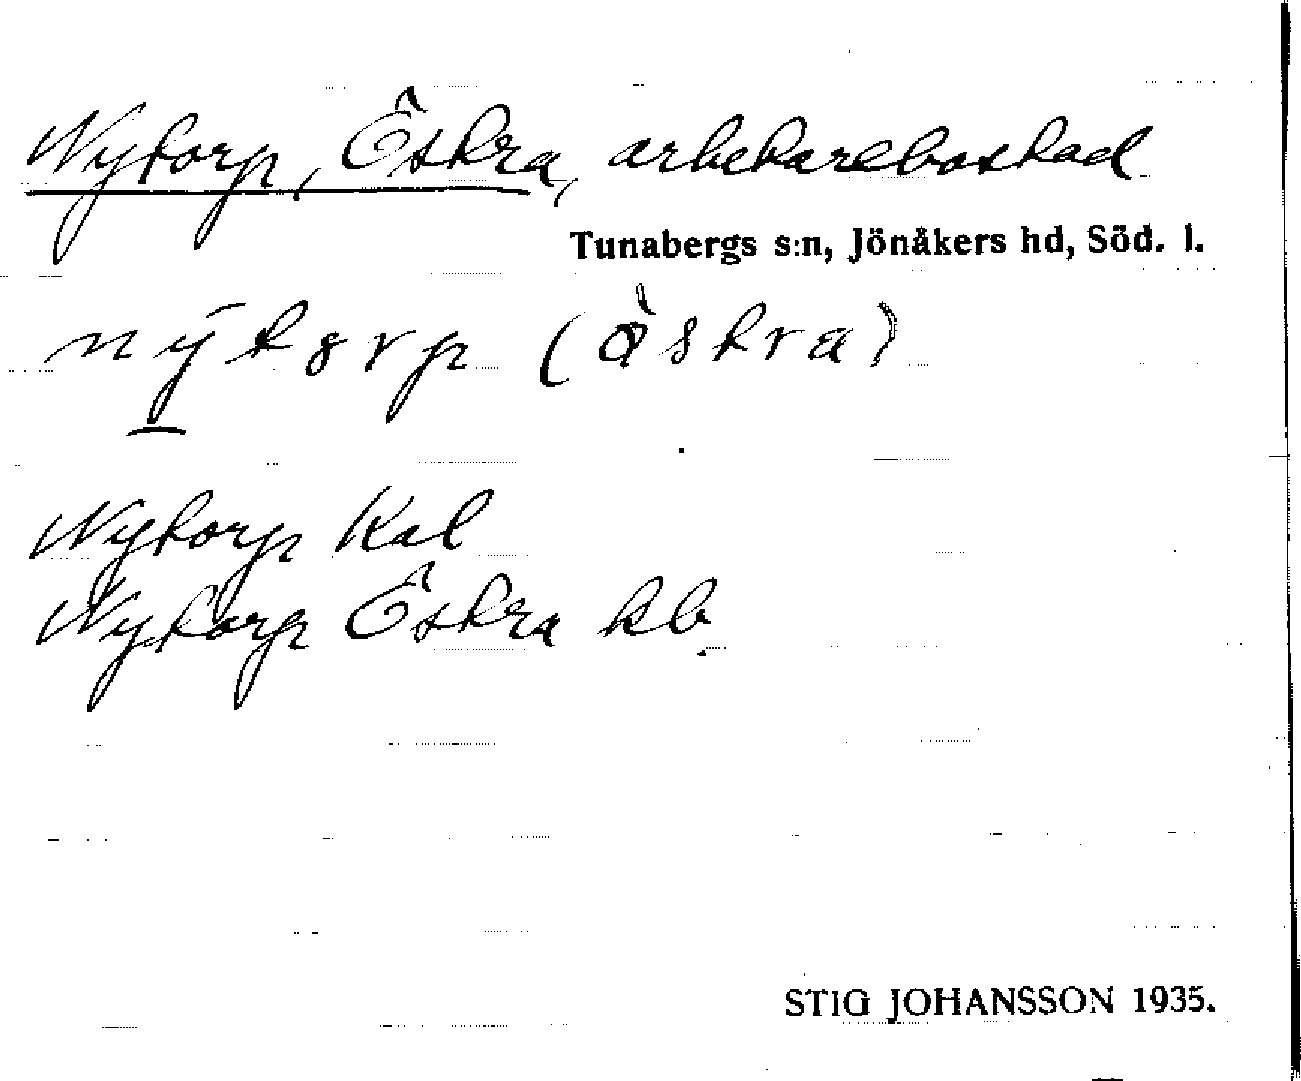 Nytorp, Östra, arbetarebostad
Tunabergs s:n, Jönåkers hd, Söd. l.
nýtorp (östra)
Nytorp Kal
Nytorp Östra kb
STIG JOHANSSON 1935.